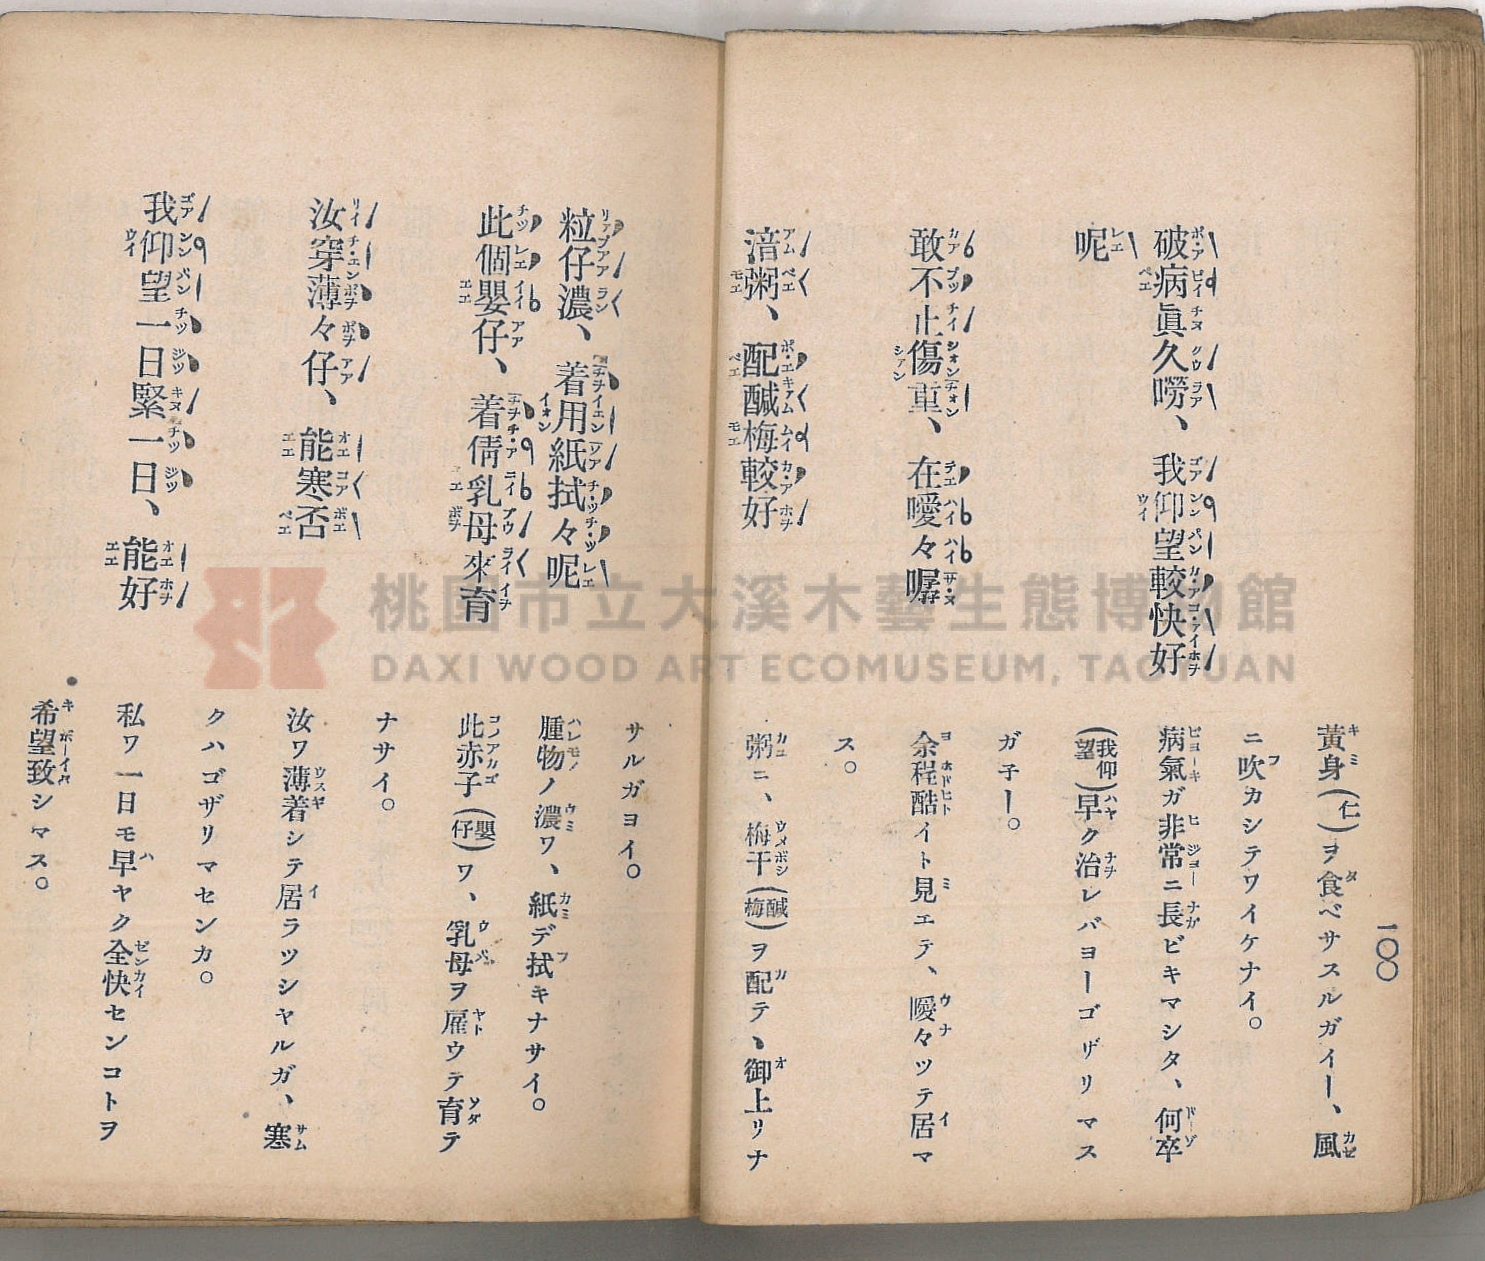 一〇〇
黃身(仁)ヲ食ベサスルガイー、風
ニ吹カシテワイケナイ。
破病眞久嘮、我仰望較快好
病氣ガ非常ニ長ビキマシタ、何卒
呢
(我仰望)早ク治レバヨーゴザリマス
ガ子ー。
敢不止傷重、在噯々㘔
余程酷イト見エテ、噯々ツテ居マ
ス。
湆粥、配醎梅較好
粥ニ、梅干(醎梅)ヲ配テ、御上リナ
サルガヨイ。
粒仔濃、着用紙拭々呢
腫物ノ濃ワ、紙デ拭キナサイ。
此個嬰仔、着倩乳母來育
此赤子(嬰仔)ワ、乳母ヲ雇ウテ育テ
ナサイ。
汝穿薄々仔、能寒否
汝ワ薄着シテ居ラツシヤルガ、寒
クハゴザリマセンカ。
我仰望一日緊一日、能好
私ワ一日モ早ヤク全快センコトヲ
希望致シマス。
桃園市立大溪木藝生態博物館
DAXI WOOD ART ECOMUSEUM, TAOYUAN